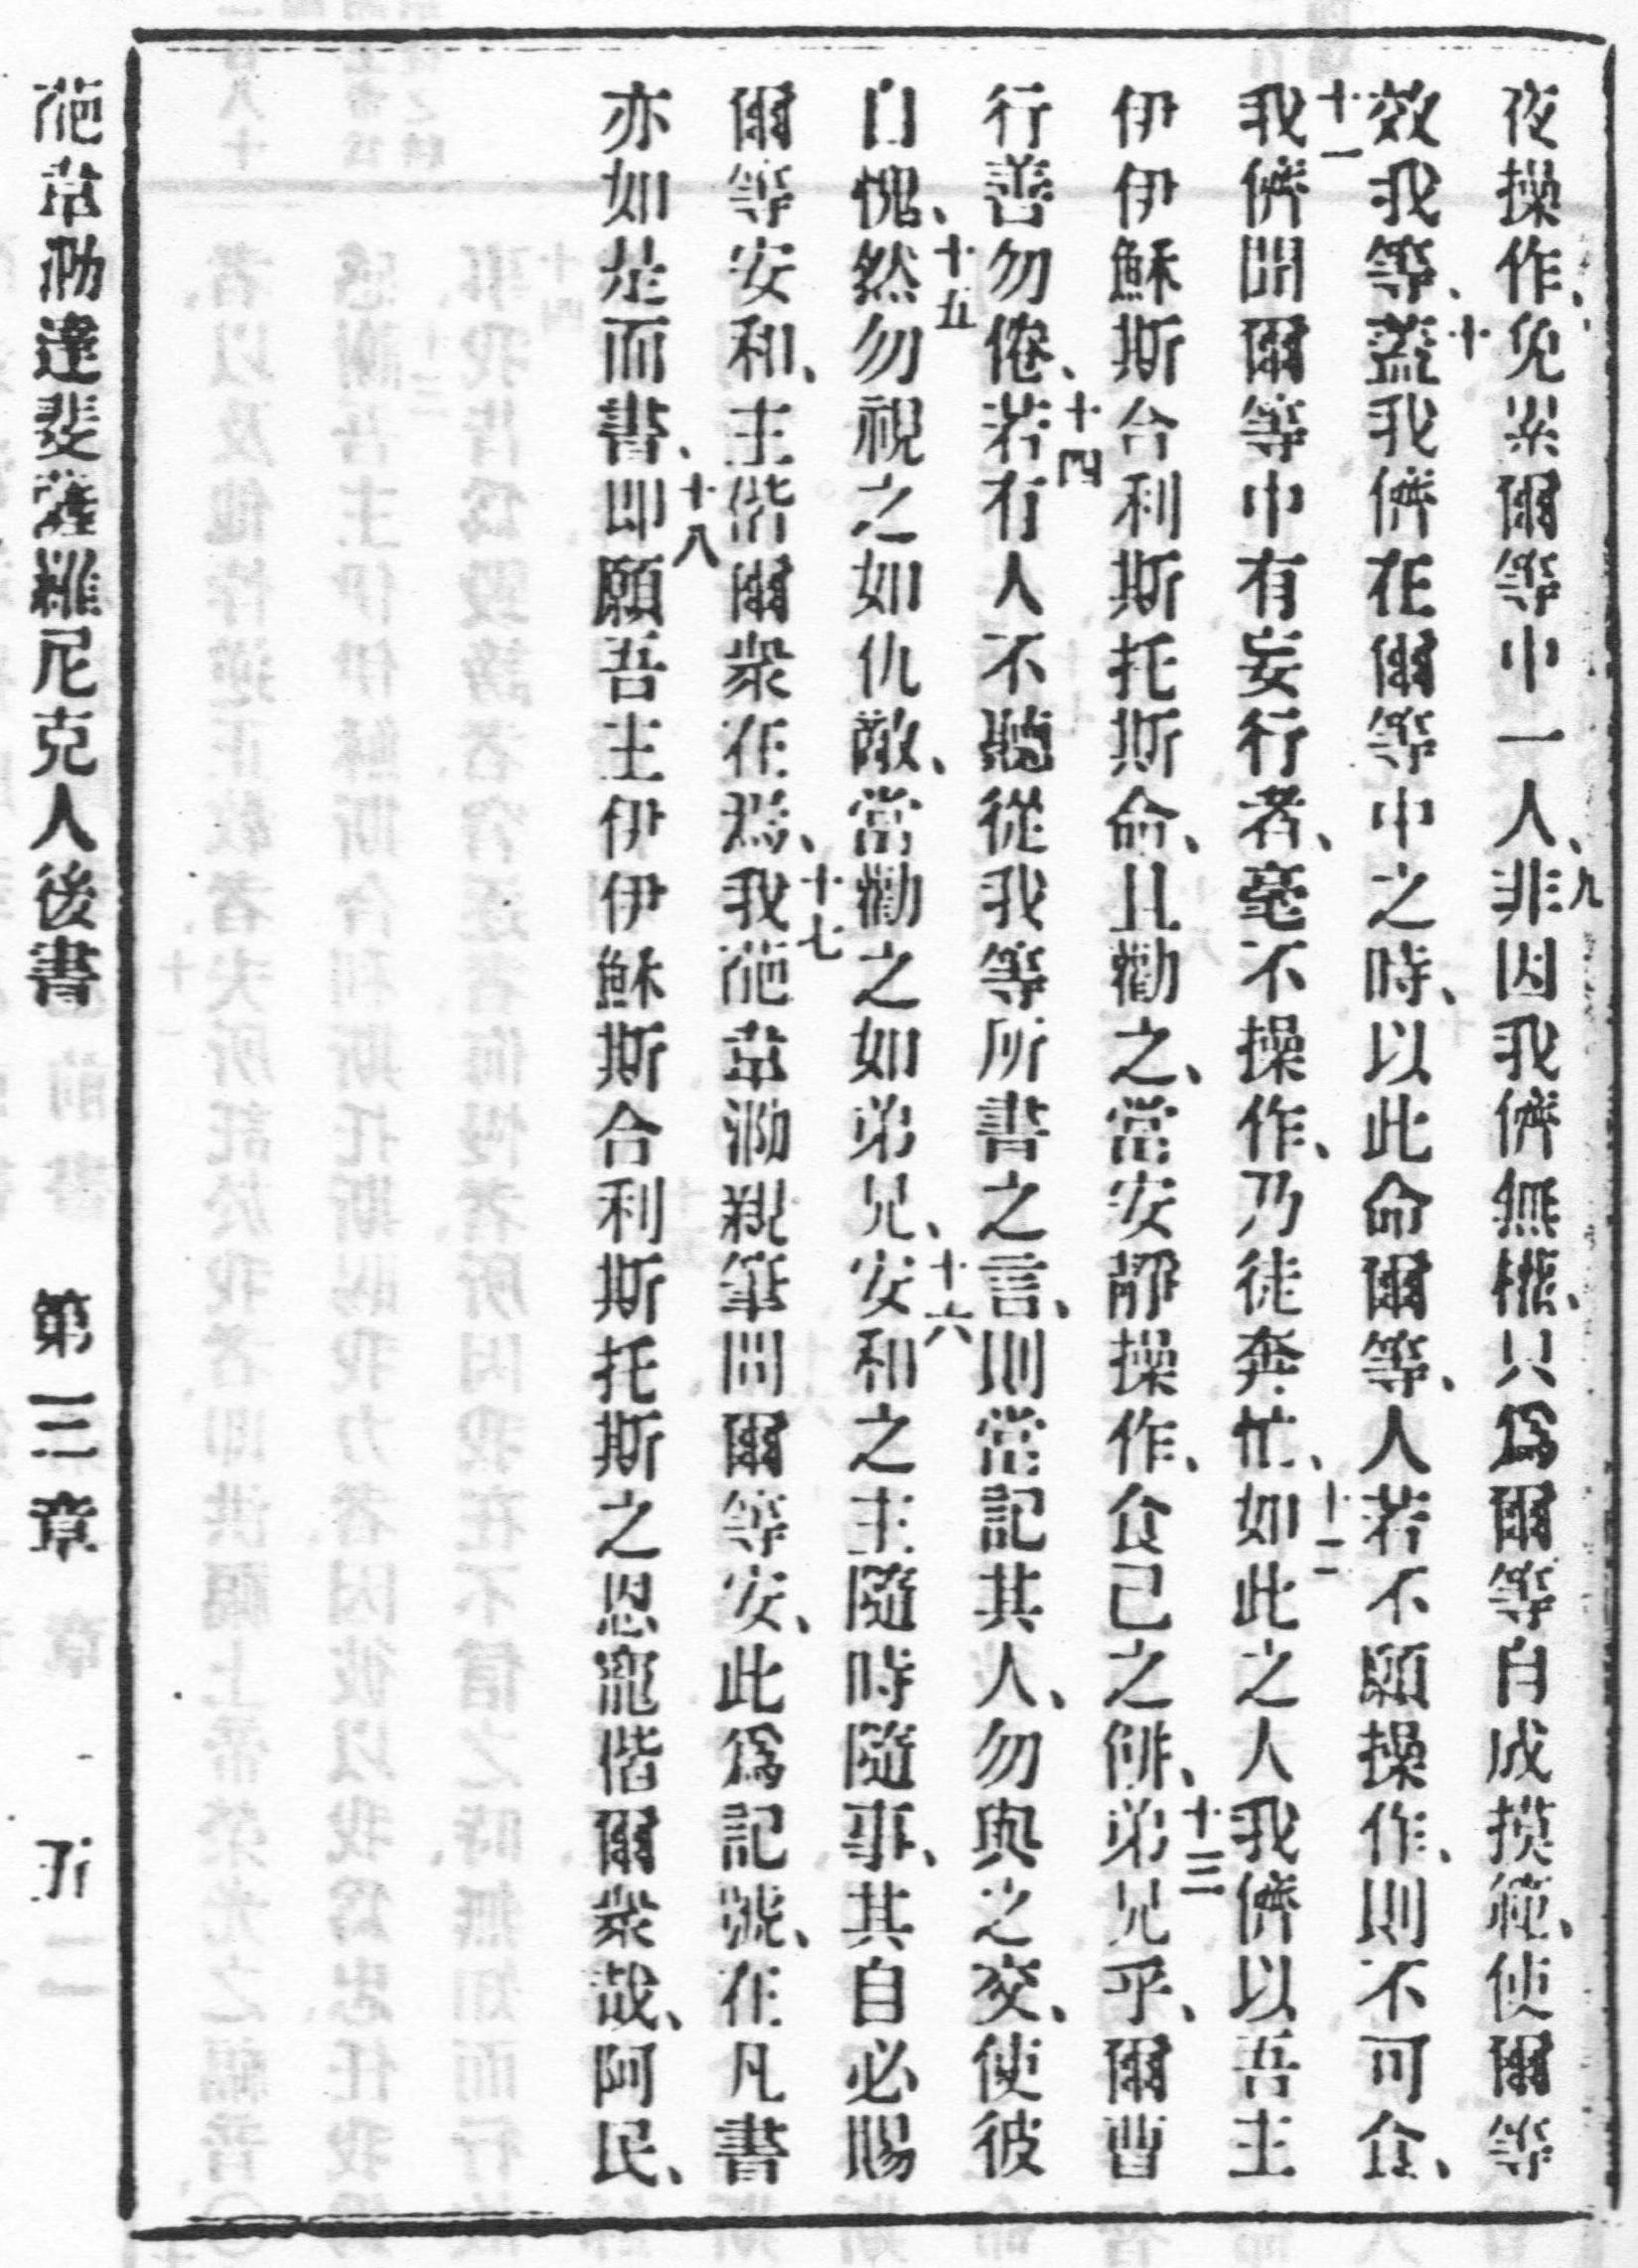 夜操作、免累爾等中一人、九非因我儕無權、只爲爾等自成摸範、使爾等
效我等、十蓋我儕在爾等中之時、以此命爾等、人若不願操作、則不可食、
十一我儕聞爾等中有妄行者、毫不操作、乃徒奔忙、十二如此之人我儕以吾主
伊伊穌斯合利斯托斯命、且勸之、當安靜操作、食己之餠、十三弟兄乎、爾曹
行善勿倦、十四若有人不聽從我等所書之言、則當記其人、勿與之交、使彼
自愧、十五然勿視之如仇敵、當勸之如弟兄、十六安和之主隨時隨事、其自必賜
爾等安和、主偕爾衆在焉、十七我葩韋泐親筆問爾等安、此爲記號、在凡書
亦如是而書、十八卽願吾主伊伊穌斯合利斯托斯之恩寵偕爾衆哉、阿民、
葩韋泐達斐薩羅尼克人後書　第三章